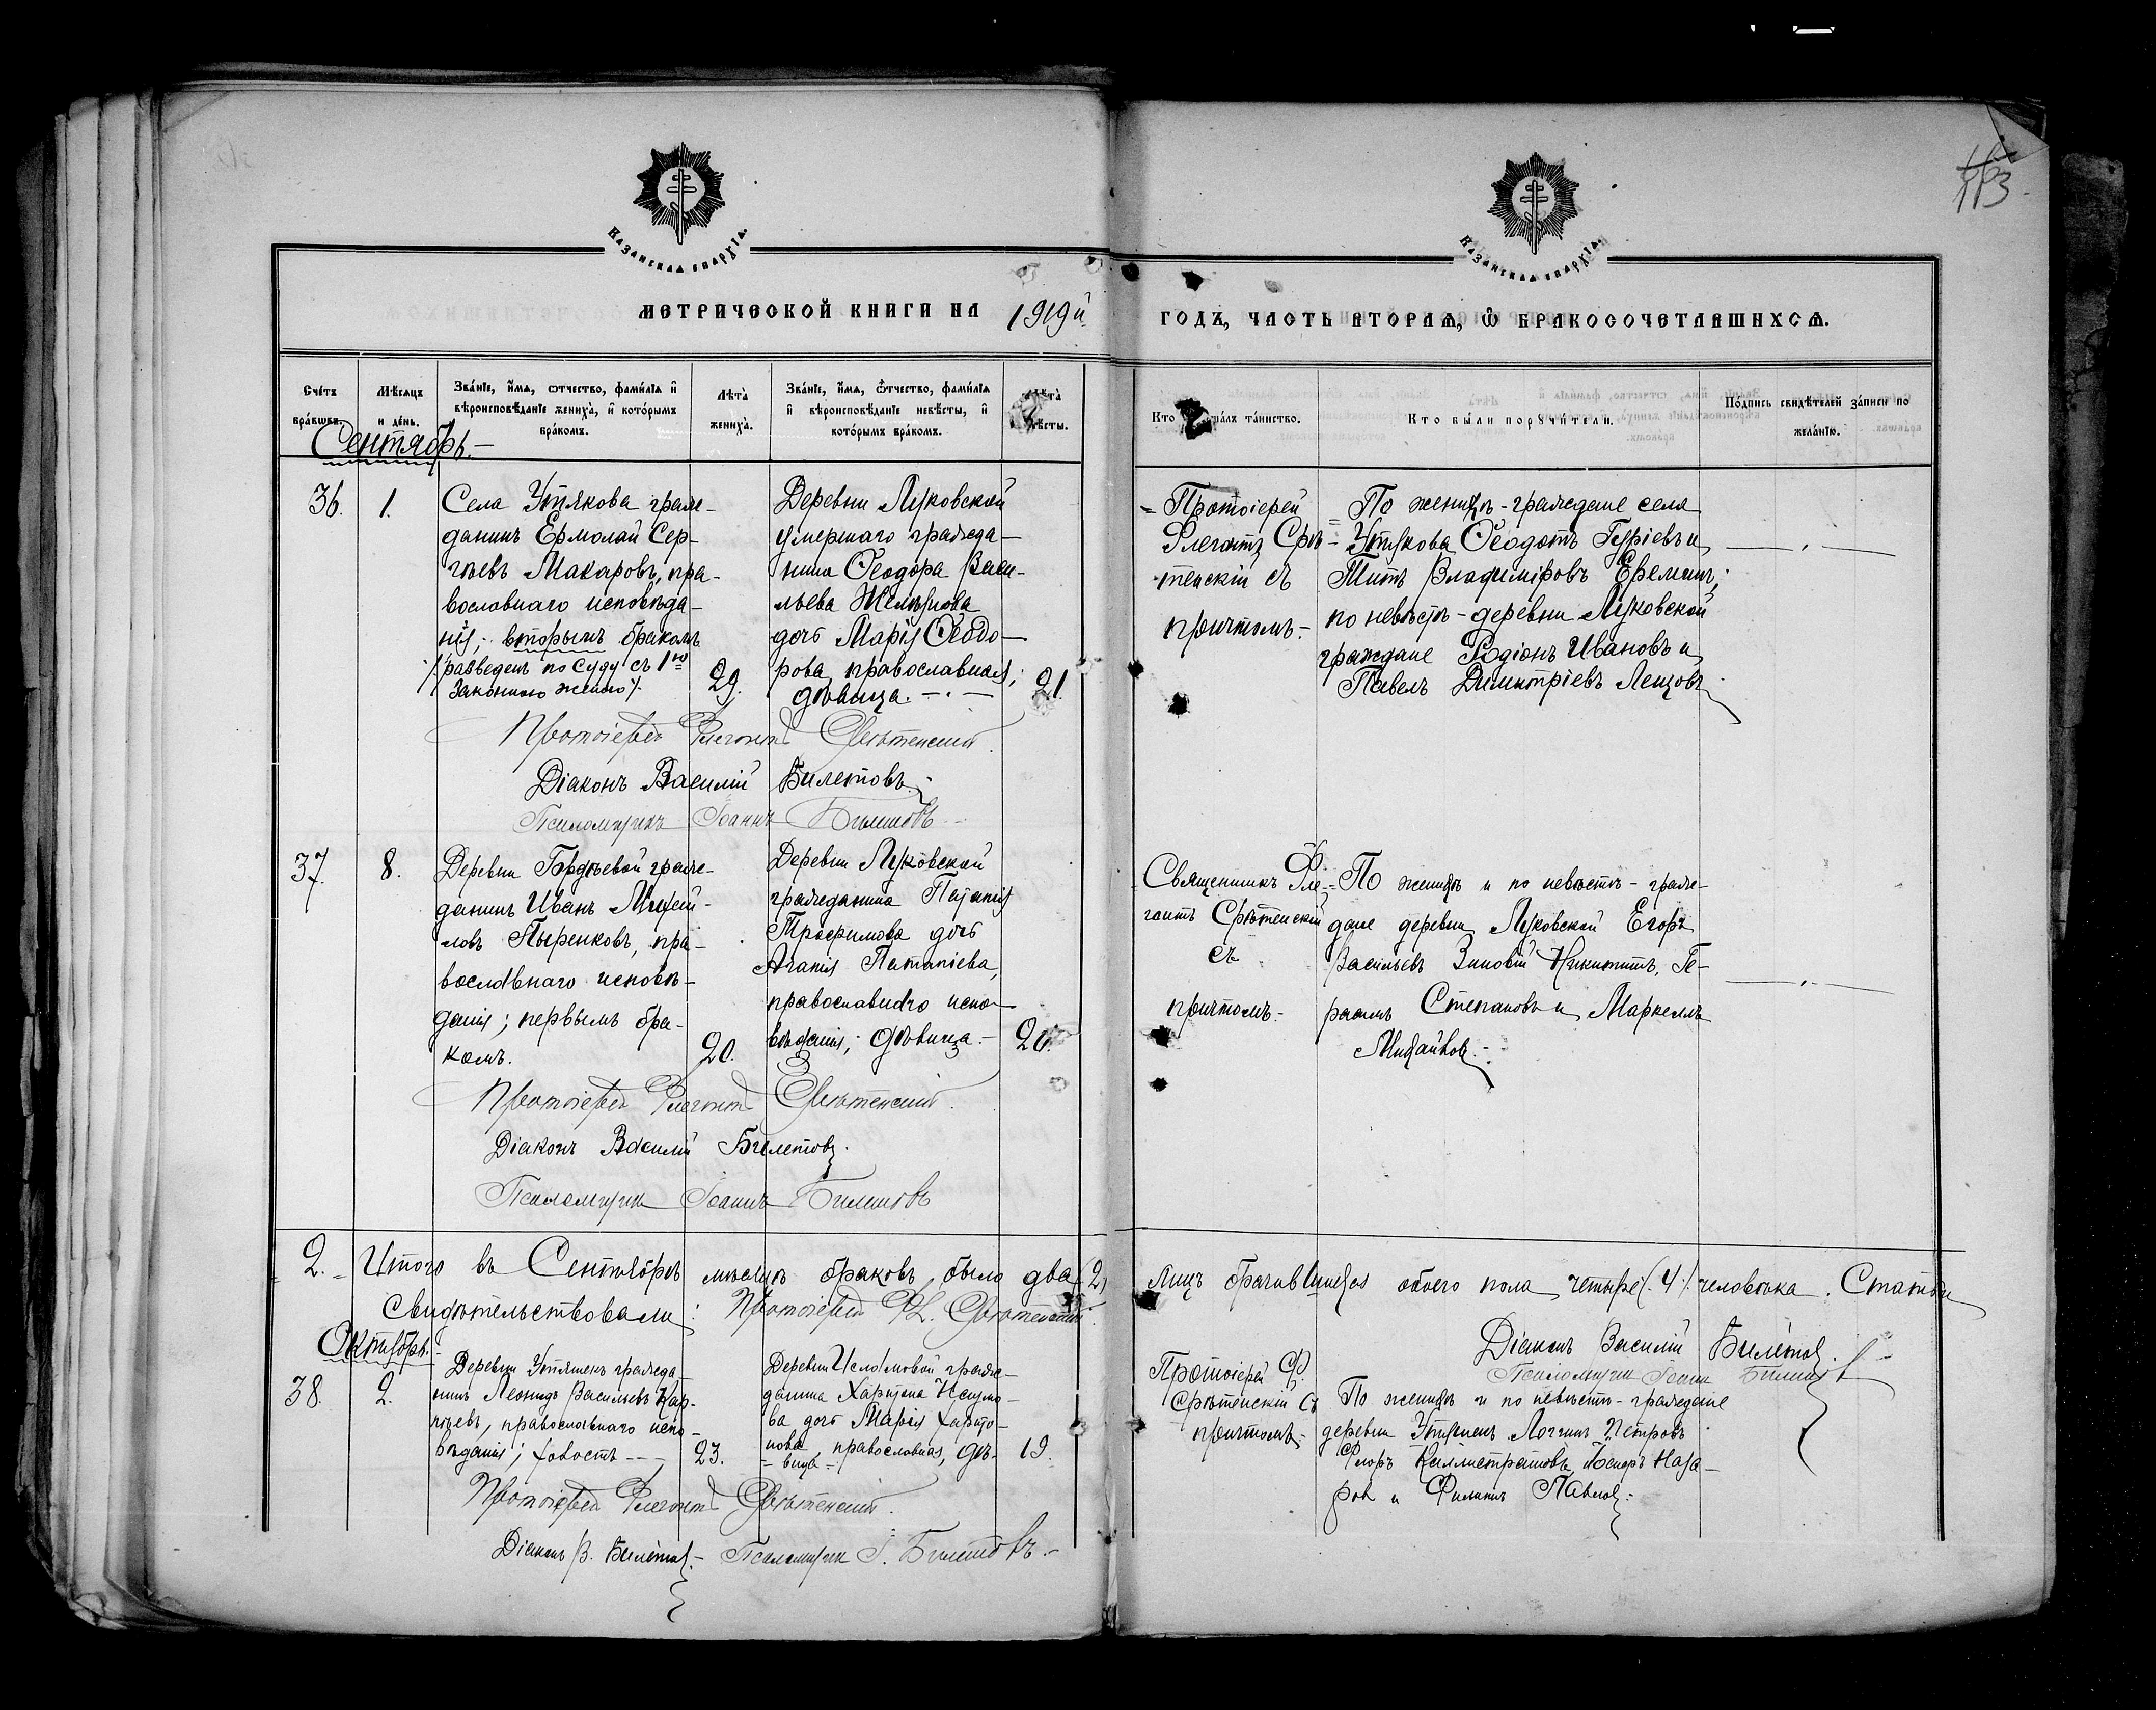 113
КАЗАНСКАѦ ЕПАРХІѦ.
КАЗАНСКАѦ ЕПАРХІѦ.
МЕТРИЧЕСКОЙ КНИГИ НА 1919й
ГОДЪ, ЧАСТЬ ВТОРАѦ, Ѡ БРАКОСОЧЕТАВШИХСѦ.
Счетъ
браковъ.
Мѣсяцъ
и день.
Званіе, имя, отчество, фамилія и
вѣроисповѣданіе жениха, и которымъ
бракомъ.
Лѣта
жениха.
Званіе, имя, отчество, фамилія
и вѣроисповѣданіе невѣсты, и
которымъ бракомъ.
Лѣта
Кто таинство.
Кто были поручители.
Подпись свидѣтелей записи по
желанію.
Сентябрь.
36.
1.
Села Утякова граж-
данинъ Ермолай Сер-
гѣевъ Макаровъ, пра-
вославнаго исповѣда-
нія; вторымъ бракомъ
/разведенъ по суду съ 1ю
законною женою/.
29.
Деревни Луковской
умершаго гражда-
нина Ѳеодора Васи-
льева
дочь Марія Ѳеодо-
рова, православная,
дѣвица.
21
Протоіерей
Флегонтъ Срѣ-
тенскій съ
причтомъ.
По женихѣ - граждане села
Утякова Ѳеодотъ Гуріевъ и
Титъ Владиміровъ Еремѣинъ;
по невѣстѣ - деревни Луковской
граждане Родіонъ Ивановъ и
Павелъ Димитріевъ
Протоіерей Флегонтъ Срѣтенскій.
Діаконъ Василій Билетовъ.
Псаломщикъ Іоаннъ Билетовъ
37.
8.
Деревни Гордѣевой граж-
данинъ Иванъ Михай-
ловъ Пыренковъ, пра-
вославнаго исповѣ-
данія; первымъ бра-
комъ.
20.
Деревни Луковской
гражданина Патапія
Трофимова дочь
Агапія Патапіева,
православнаго испо-
вѣданія; дѣвица.
20.
Священникъ Фле-
гонтъ Срѣтенскій
съ
причтомъ.
По женихѣ и по невѣстѣ - граж-
дане деревни Луковской Егоръ
Васильевъ Зиновій Никитинъ, Ге-
расимъ Степановъ и Маркеллъ
Михайловъ.
Протоіерей Флегонтъ Срѣтенскій.
Діаконъ Василій Билетовъ.
Псаломщикъ Іоаннъ Билетовъ
2. Итого въ Сентябрѣ мѣсяцѣ браковъ было два (2)
лицъ брачившихся обоего пола четыре (4) человѣка. Статьи
Свидѣтельствовали: Протоіерей Фл. Срѣтенскій.
Діаконъ Василій Билетовъ.
Псаломщикъ Іоаннъ Билетовъ
Октябрь.
38.
2.
Деревни Утяшекъ гражда-
нинъ Леонидъ Васильевъ Кар-
пѣевъ, православнаго испо-
вѣданія; холостъ
23.
Деревни Исламовой граж-
данина Харитона Наумо-
ва дочь Марія Харито-
нова, православная, дѣ-
вица
19.
Протоіерей Ф.
Срѣтенскій съ
причтомъ.
По женихѣ и по невѣстѣ - граждане
деревни Утяшекъ Логгинъ Петровъ
Флоръ Каллистратовъ, Назa-
ровъ и Филиппъ Павловъ.
Протоіерей Флегонтъ Срѣтенскій.
Діаконъ В. Билетовъ. Псаломщикъ І. Билетовъ.